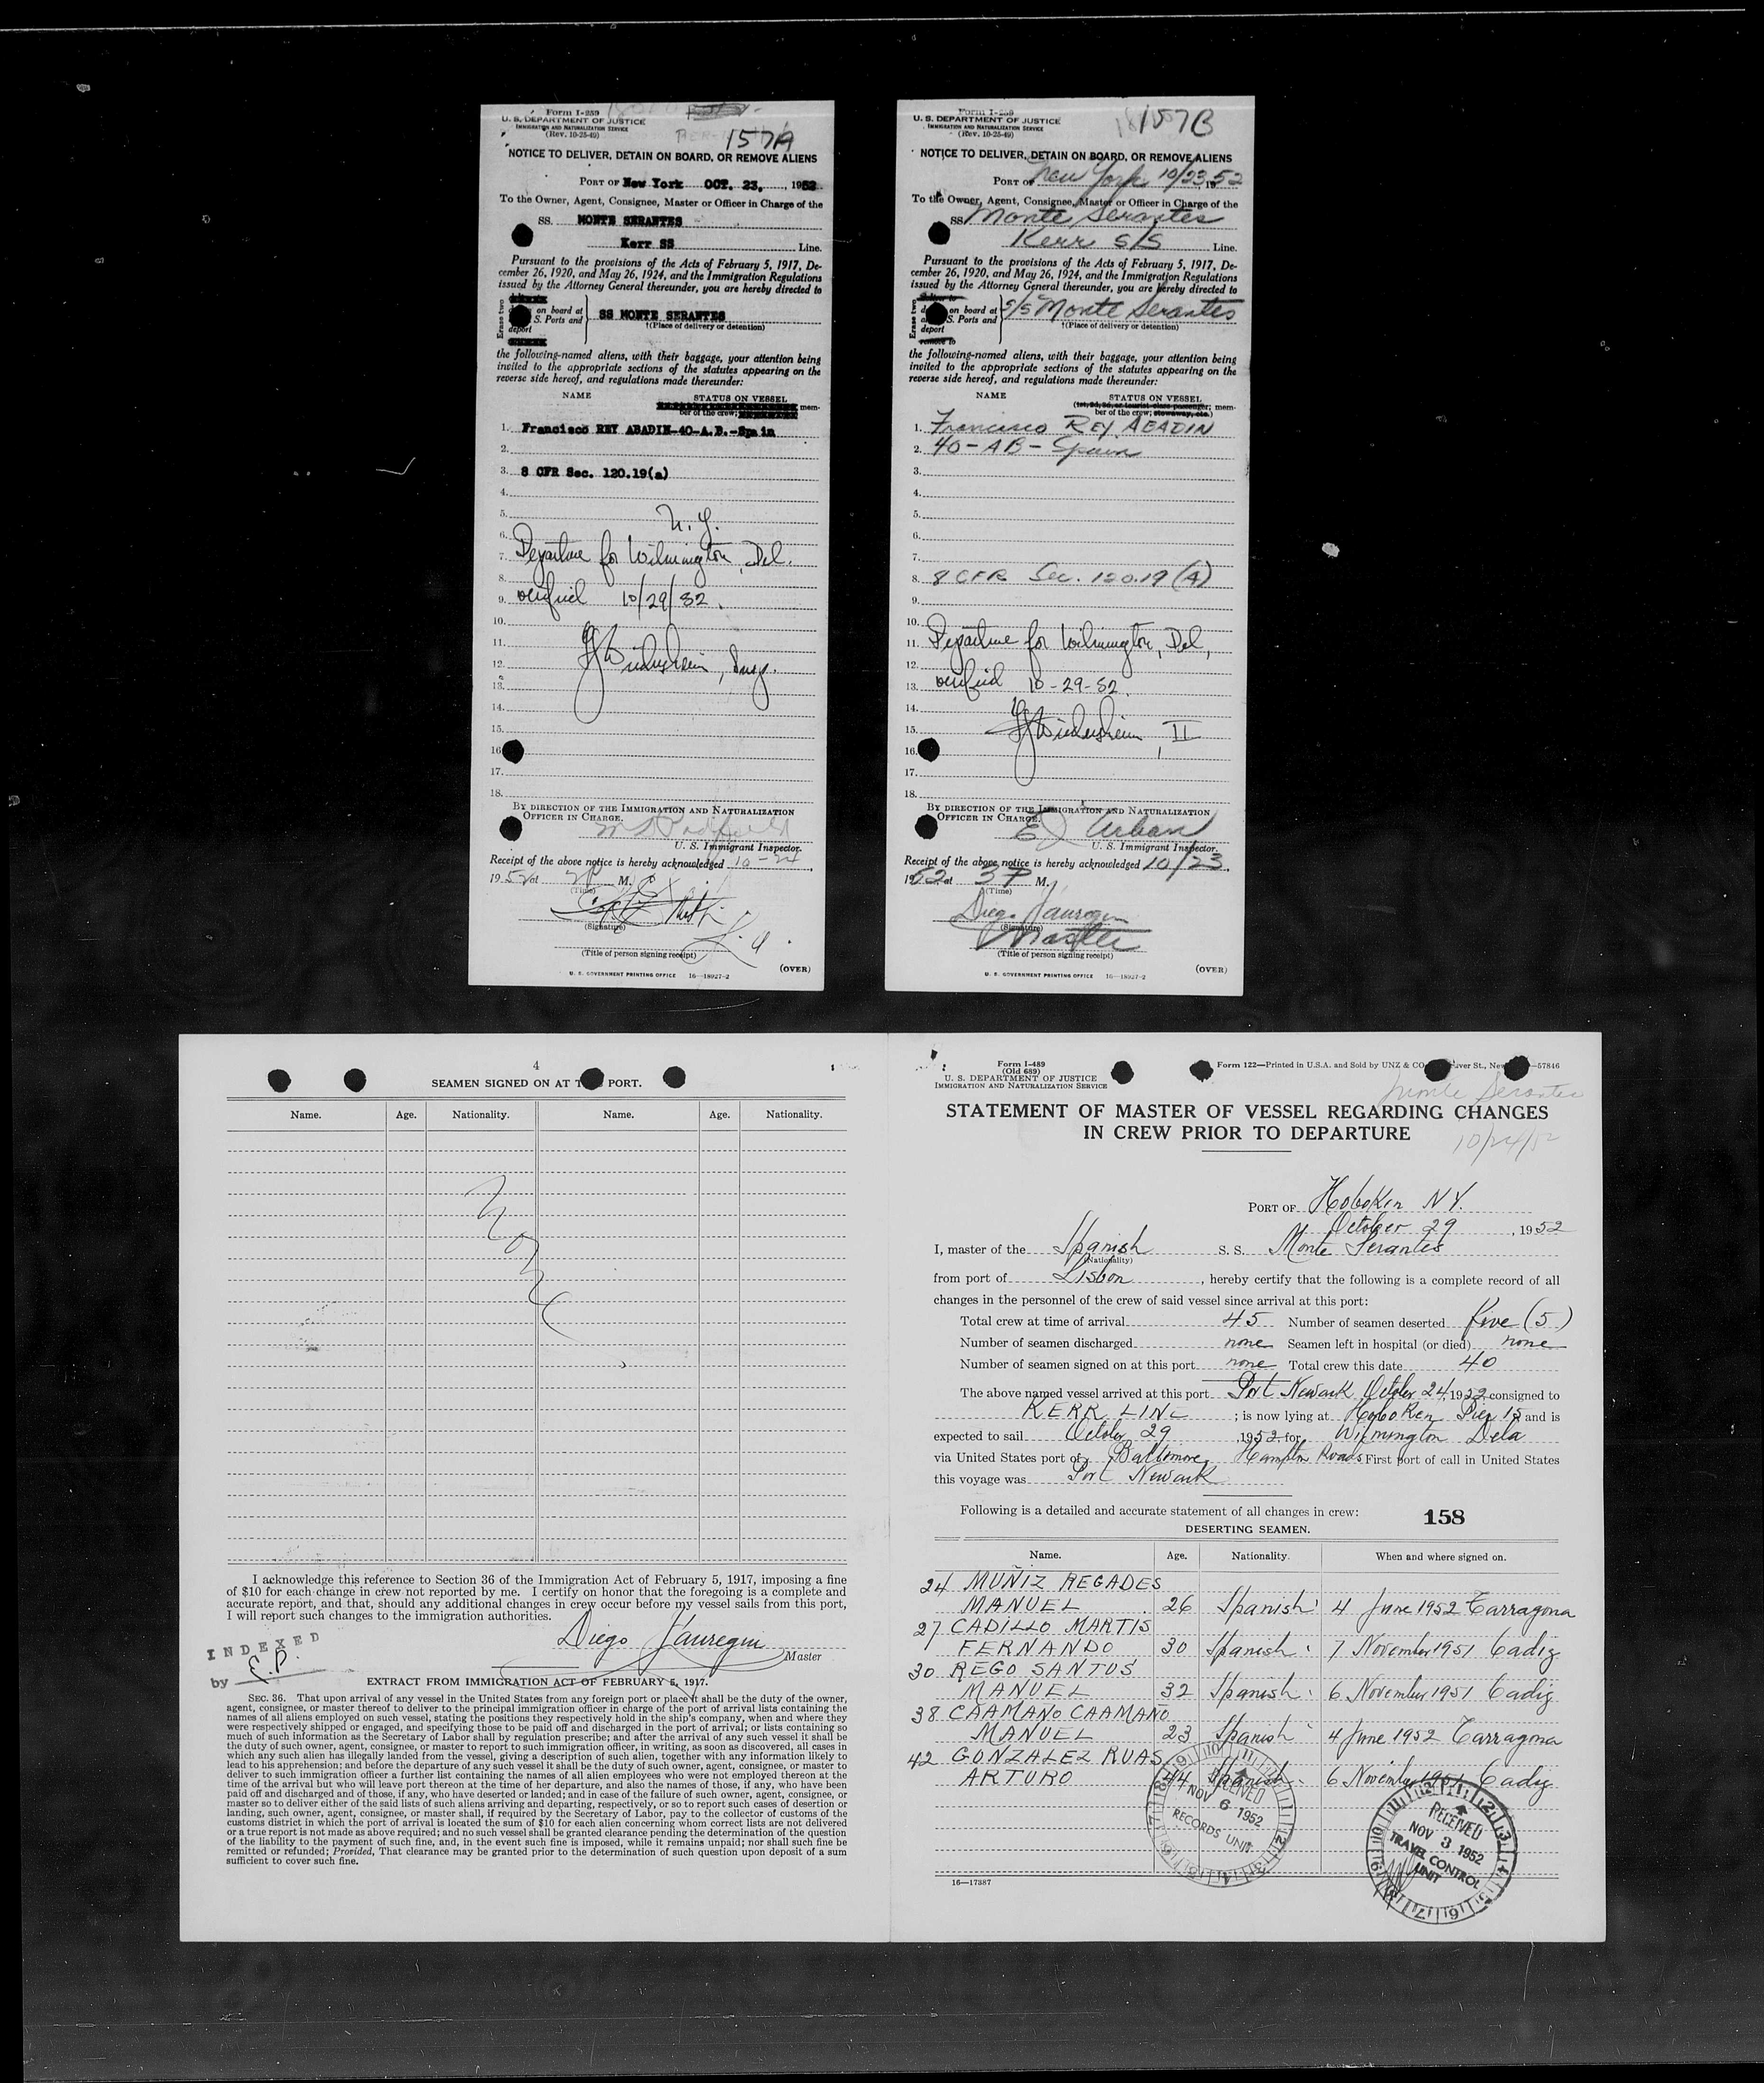 Form I-259
U. S. DEPARTMENT OF JUSTICE
IMMIGRATION AND NATURALIZATION SERVICE
(Rev. 10-25-49)
157A
NOTICE TO DELIVER, DETAIN ON BOARD, OR REMOVE ALIENS
PORT OF New York OCT. 23, , 1952
To the Owner, Agent, Consignee, Master or Officer in Charge of the
SS. MONTE SERANTES
Kerr SS Line.
Pursuant to the provisions of the Acts of February 5, 1917, De-
cember 26, 1920, and May 26, 1924, and the Immigration Regulations
issued by the Attorney General thereunder, you are hereby directed to
Erase two
on board at
S. Ports and
deport
SS MONTE SERANTES
†(Place of delivery or detention)
the following-named aliens, with their baggage, your attention being
invited to the appropriate sections of the statutes appearing on the
reverse side hereof, and regulations made thereunder:
NAME STATUS ON VESSEL
mem-
ber of the crew;
1. Francisco REY ABADIN-40-A.B.-Spain
2.
3. 8 CFR Sec. 120.19(a)
4.
5. N.Y.
6.
7. Departure for Wilmington, Del.
8.
9. verified 10/29/52.
10.
11.
12.
13.
14.
15.
16.
17.
18.
BY DIRECTION OF THE IMMIGRATION AND NATURALIZATION
OFFICER IN CHARGE.
U. S. Immigrant Inspector.
Receipt of the above notice is hereby acknowledged 10-24,
1952 at 2P M.
(Time)
(Signature)
(Title of person signing receipt)
U. S. GOVERNMENT PRINTING OFFICE 16—18927-2 (OVER)
Form I-259
U. S. DEPARTMENT OF JUSTICE
IMMIGRATION AND NATURALIZATION SERVICE
(Rev. 10-25-49)
157B
NOTICE TO DELIVER, DETAIN ON BOARD, OR REMOVE ALIENS
PORT OF New York 10/23, 1952
To the Owner, Agent, Consignee, Master or Officer in Charge of the
SS Monte Serantes
Kerr S/S Line.
Pursuant to the provisions of the Acts of February 5, 1917, De-
cember 26, 1920, and May 26, 1924, and the Immigration Regulations
issued by the Attorney General thereunder, you are hereby directed to
Erase two
on board at
S. Ports and
deport
S/S Monte Serantes
†(Place of delivery or detention)
the following-named aliens, with their baggage, your attention being
invited to the appropriate sections of the statutes appearing on the
reverse side hereof, and regulations made thereunder:
NAME STATUS ON VESSEL
(1st, 2d, 3d, or tourist class passenger; mem-
ber of the crew; stowaway, etc.)
1. Francisco REY ABADIN
2. 40-AB-Spain
3.
4.
5.
6.
7.
8. 8 CFR Sec. 120.19(A)
9.
10.
11. Departure for Wilmington, Del,
12.
13. verified 10-29-52.
14.
15. II
16.
17.
18.
BY DIRECTION OF THE IMMIGRATION AND NATURALIZATION
OFFICER IN CHARGE.
E J Urban
U. S. Immigrant Inspector.
Receipt of the above notice is hereby acknowledged 10/23,
1952 at 3 P M.
(Time)
Diego Jauregui
(Signature)
Master
(Title of person signing receipt)
U. S. GOVERNMENT PRINTING OFFICE 16—18927-2 (OVER)
4
SEAMEN SIGNED ON AT PORT.
Name. Age. Nationality. Name. Age. Nationality.
None
I acknowledge this reference to Section 36 of the Immigration Act of February 5, 1917, imposing a fine
of $10 for each change in crew not reported by me. I certify on honor that the foregoing is a complete and
accurate report, and that, should any additional changes in crew occur before my vessel sails from this port,
I will report such changes to the immigration authorities.
Diego Jauregui
Master
INDEXED
by E.P.
EXTRACT FROM IMMIGRATION ACT OF FEBRUARY 5, 1917.
SEC. 36. That upon arrival of any vessel in the United States from any foreign port or place it shall be the duty of the owner,
agent, consignee, or master thereof to deliver to the principal immigration officer in charge of the port of arrival lists containing the
names of all aliens employed on such vessel, stating the positions they respectively hold in the ship's company, when and where they
were respectively shipped or engaged, and specifying those to be paid off and discharged in the port of arrival; or lists containing so
much of such information as the Secretary of Labor shall by regulation prescribe; and after the arrival of any such vessel it shall be
the duty of such owner, agent, consignee, or master to report to such immigration officer, in writing, as soon as discovered, all cases in
which any such alien has illegally landed from the vessel, giving a description of such alien, together with any information likely to
lead to his apprehension; and before the departure of any such vessel it shall be the duty of such owner, agent, consignee, or master to
deliver to such immigration officer a further list containing the names of all alien employees who were not employed thereon at the
time of the arrival but who will leave port thereon at the time of her departure, and also the names of those, if any, who have been
paid off and discharged and of those, if any, who have deserted or landed; and in case of the failure of such owner, agent, consignee, or
master so to deliver either of the said lists of such aliens arriving and departing, respectively, or so to report such cases of desertion or
landing, such owner, agent, consignee, or master, shall, if required by the Secretary of Labor, pay to the collector of customs of the
customs district in which the port of arrival is located the sum of $10 for each alien concerning whom correct lists are not delivered
or a true report is not made as above required; and no such vessel shall be granted clearance pending the determination of the question
of the liability to the payment of such fine, and, in the event such fine is imposed, while it remains unpaid; nor shall such fine be
remitted or refunded; Provided, That clearance may be granted prior to the determination of such question upon deposit of a sum
sufficient to cover such fine.
Form I-489
(Old 689)
U. S. DEPARTMENT OF JUSTICE
IMMIGRATION AND NATURALIZATION SERVICE
Form 122—Printed in U.S.A. and Sold by UNZ & CO. St., New —57846
Monte Serantes
10/24/52
STATEMENT OF MASTER OF VESSEL REGARDING CHANGES
IN CREW PRIOR TO DEPARTURE
PORT OF Hoboken N.Y.
October 29, 1952
I, master of the Spanish S. S. Monte Serantes
(Nationality)
from port of Lisbon, hereby certify that the following is a complete record of all
changes in the personnel of the crew of said vessel since arrival at this port:
Total crew at time of arrival 45 Number of seamen deserted five (5)
Number of seamen discharged none Seamen left in hospital (or died) none
Number of seamen signed on at this port none Total crew this date 40
The above named vessel arrived at this port Port Newark October 24, 1952 consigned to
KERR LINE; is now lying at Hoboken Pier 15 and is
expected to sail October 29, 1952 for Wilmington Dela
via United States port of Baltimore, Hampton Roads First port of call in United States
this voyage was Port Newark
Following is a detailed and accurate statement of all changes in crew: 158
DESERTING SEAMEN.
Name. Age. Nationality. When and where signed on.
24 MUÑIZ REGADES
MANUEL 26 Spanish 4 June 1952 Tarragona
27 CADILLO MARTIS
FERNANDO 30 Spanish 7 November 1951 Cadiz
30 REGO SANTOS
MANUEL 32 Spanish 6 November 1951 Cadiz
38 CAAMAÑO CAAMAÑO
MANUEL 23 Spanish 4 June 1952 Tarragona
42 GONZALEZ RUAS
ARTURO 44 Spanish 6 November 1951 Cadiz
RECEIVED
NOV 6 1952
RECORDS UNIT
RECEIVED
NOV 3 1952
TRAVEL CONTROL
UNIT
16—17387